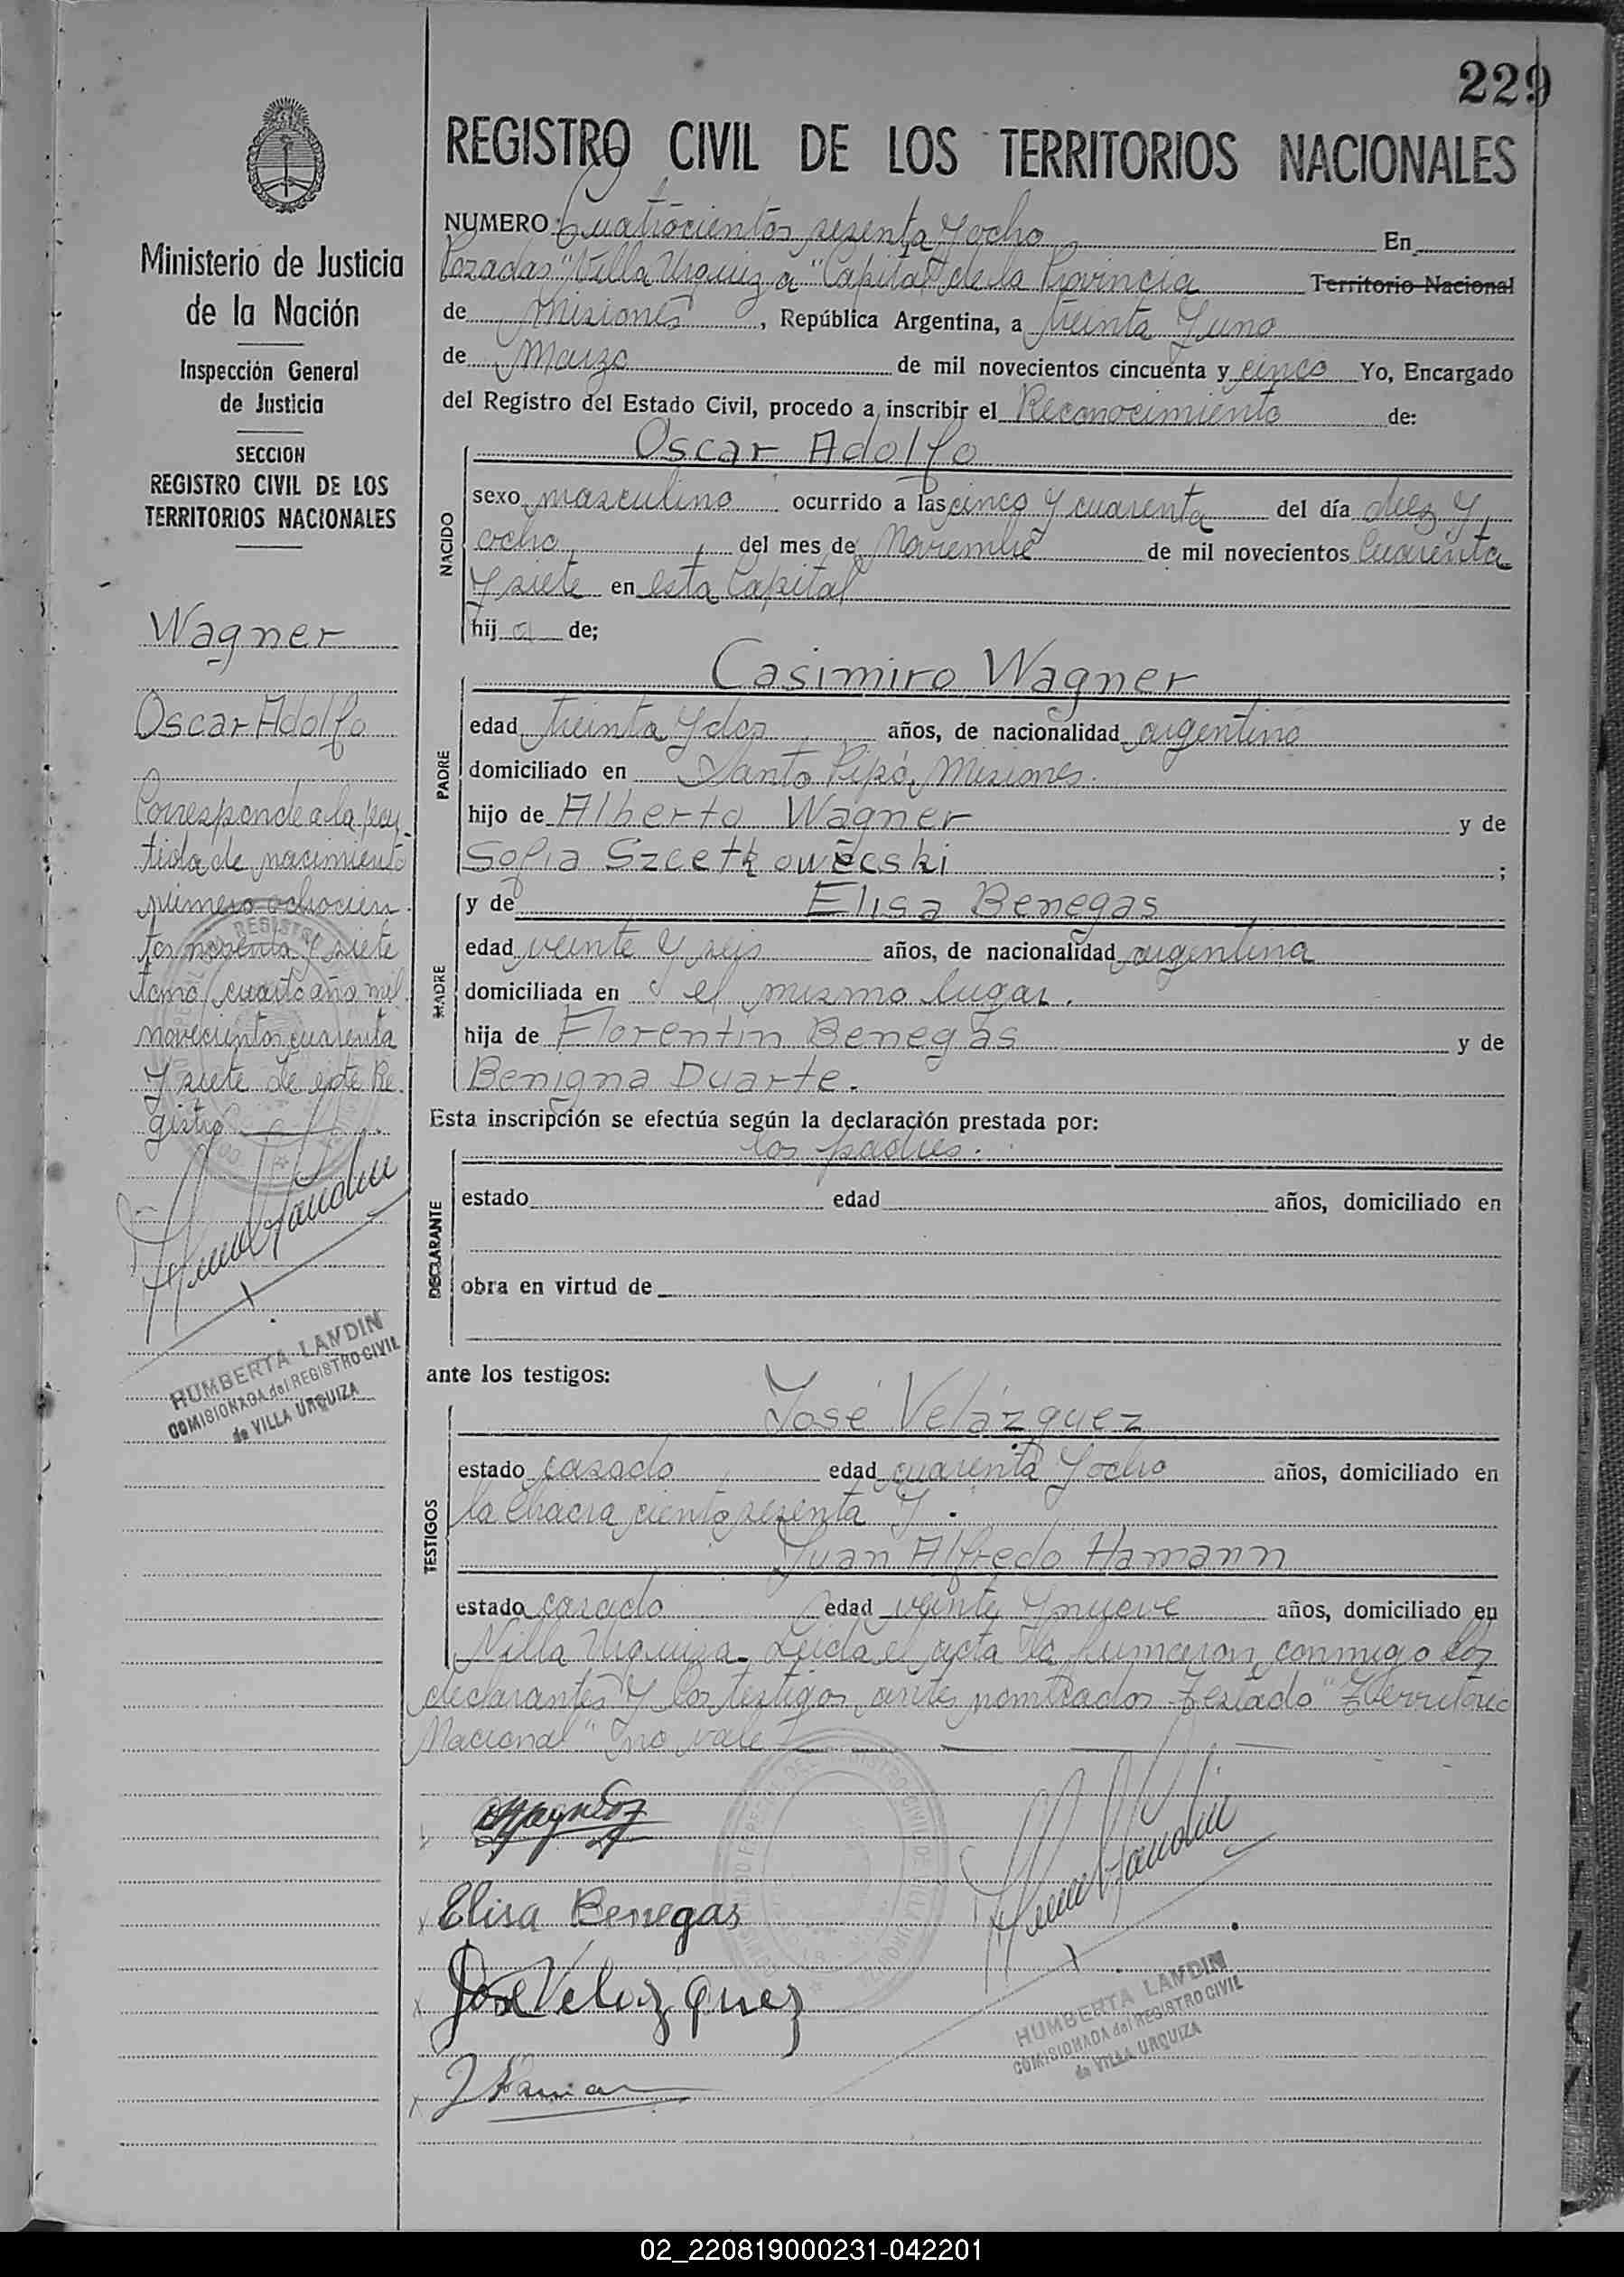 229
REGISTRO CIVIL DE LOS TERRITORIOS NACIONALES
Ministerio de Justicia
de la Nación
Inspección General
de Justicia
SECCION
REGISTRO CIVIL DE LOS
TERRITORIOS NACIONALES
Wagner
Oscar Adolfo
Corresponde a la par-
tida de nacimiento
número ochocien
tos noventa y siete
tomo cuarto año mil
novecientos cuarenta
y siete de este Re-
gistro
HUMBERTA LANDIN
COMISIONADA del REGISTRO CIVIL
de VILLA URQUIZA
NUMERO Cuatrocientos sesenta y ocho En
Pozadas "Villa Urquiza" Capital de la Provincia Territorio Nacional
de Misiones, República Argentina, a treinta y uno
de Marzo de mil novecientos cincuenta y cinco Yo, Encargado
del Registro del Estado Civil, procedo a inscribir el Reconocimiento de:
NACIDO
Oscar Adolfo
sexo masculino ocurrido a las cinco y cuarenta del día diez y
ocho del mes de Noviembre de mil novecientos cuarenta
y siete en esta Capital
hijo de;
PADRE
Casimiro Wagner
edad treinta y dos años, de nacionalidad argentino
domiciliado en Santo Pipó, Misiones.
hijo de Alberto Wagner y de
Sofia Szcetkowecski ;
MADRE
y de Elisa Benegas
edad veinte y seis años, de nacionalidad argentina
domiciliada en el mismo lugar.
hija de Florentin Benegas y de
Benigna Duarte.
Esta inscripción se efectúa según la declaración prestada por:
DECLARANTE
los padres.
estado edad años, domiciliado en
obra en virtud de
ante los testigos:
TESTIGOS
José Velázquez
estado casado edad cuarenta y ocho años, domiciliado en
la Chacra ciento sesenta y .
Juan Alfredo Hamann
estado casado edad veinte y nueve años, domiciliado en
Villa Urquiza. Leida el acta la firmaron conmigo los
declarantes y los testigos antes nombrados. Testado "Territorio
Nacional" no vale
Elisa Benegas
José Velazquez
HUMBERTA LANDIN
COMISIONADA del REGISTRO CIVIL
de VILLA URQUIZA
02_220819000231-042201